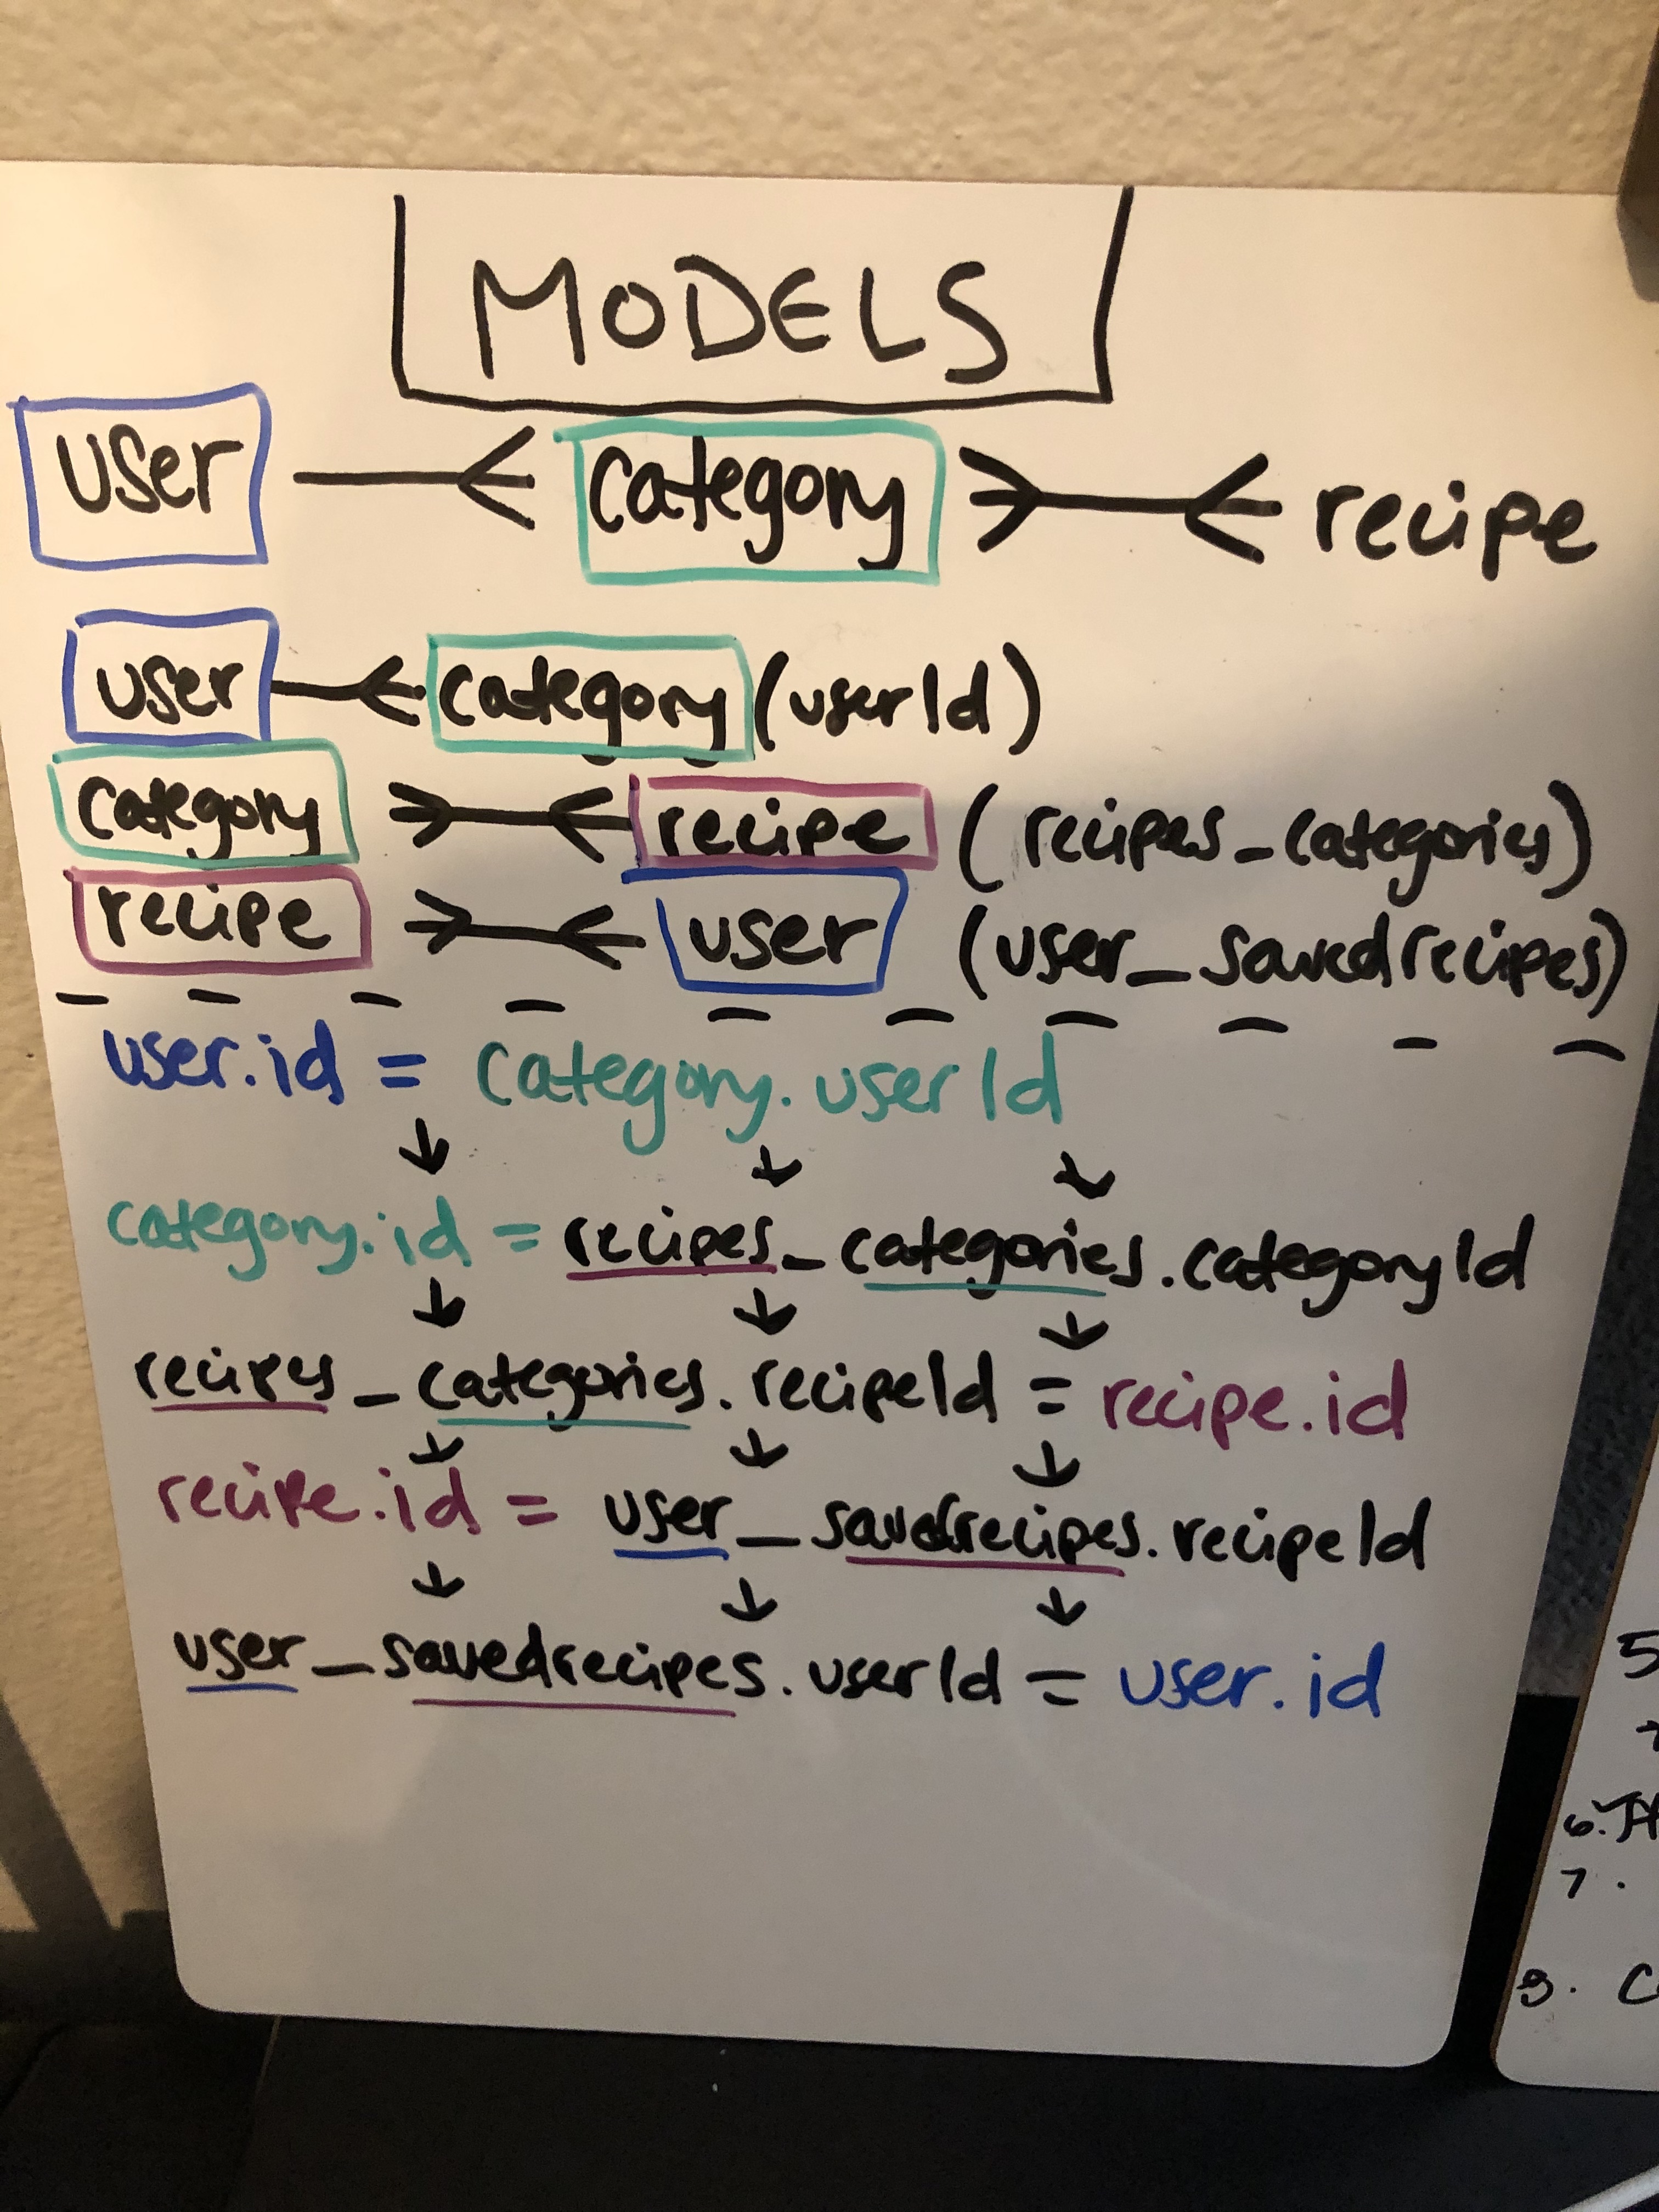 MODELS
user category recipe
user category (userId)
category recipe (recipes_categories)
recipe user (user_savedrecipes)
user.id = category.userId
category.id = recipes_categories.categoryId
recipes_categories.recipeId = recipe.id
recipe.id = user_savedrecipes.recipeId
user_savedrecipes.userId = user.id
5
6.
7.